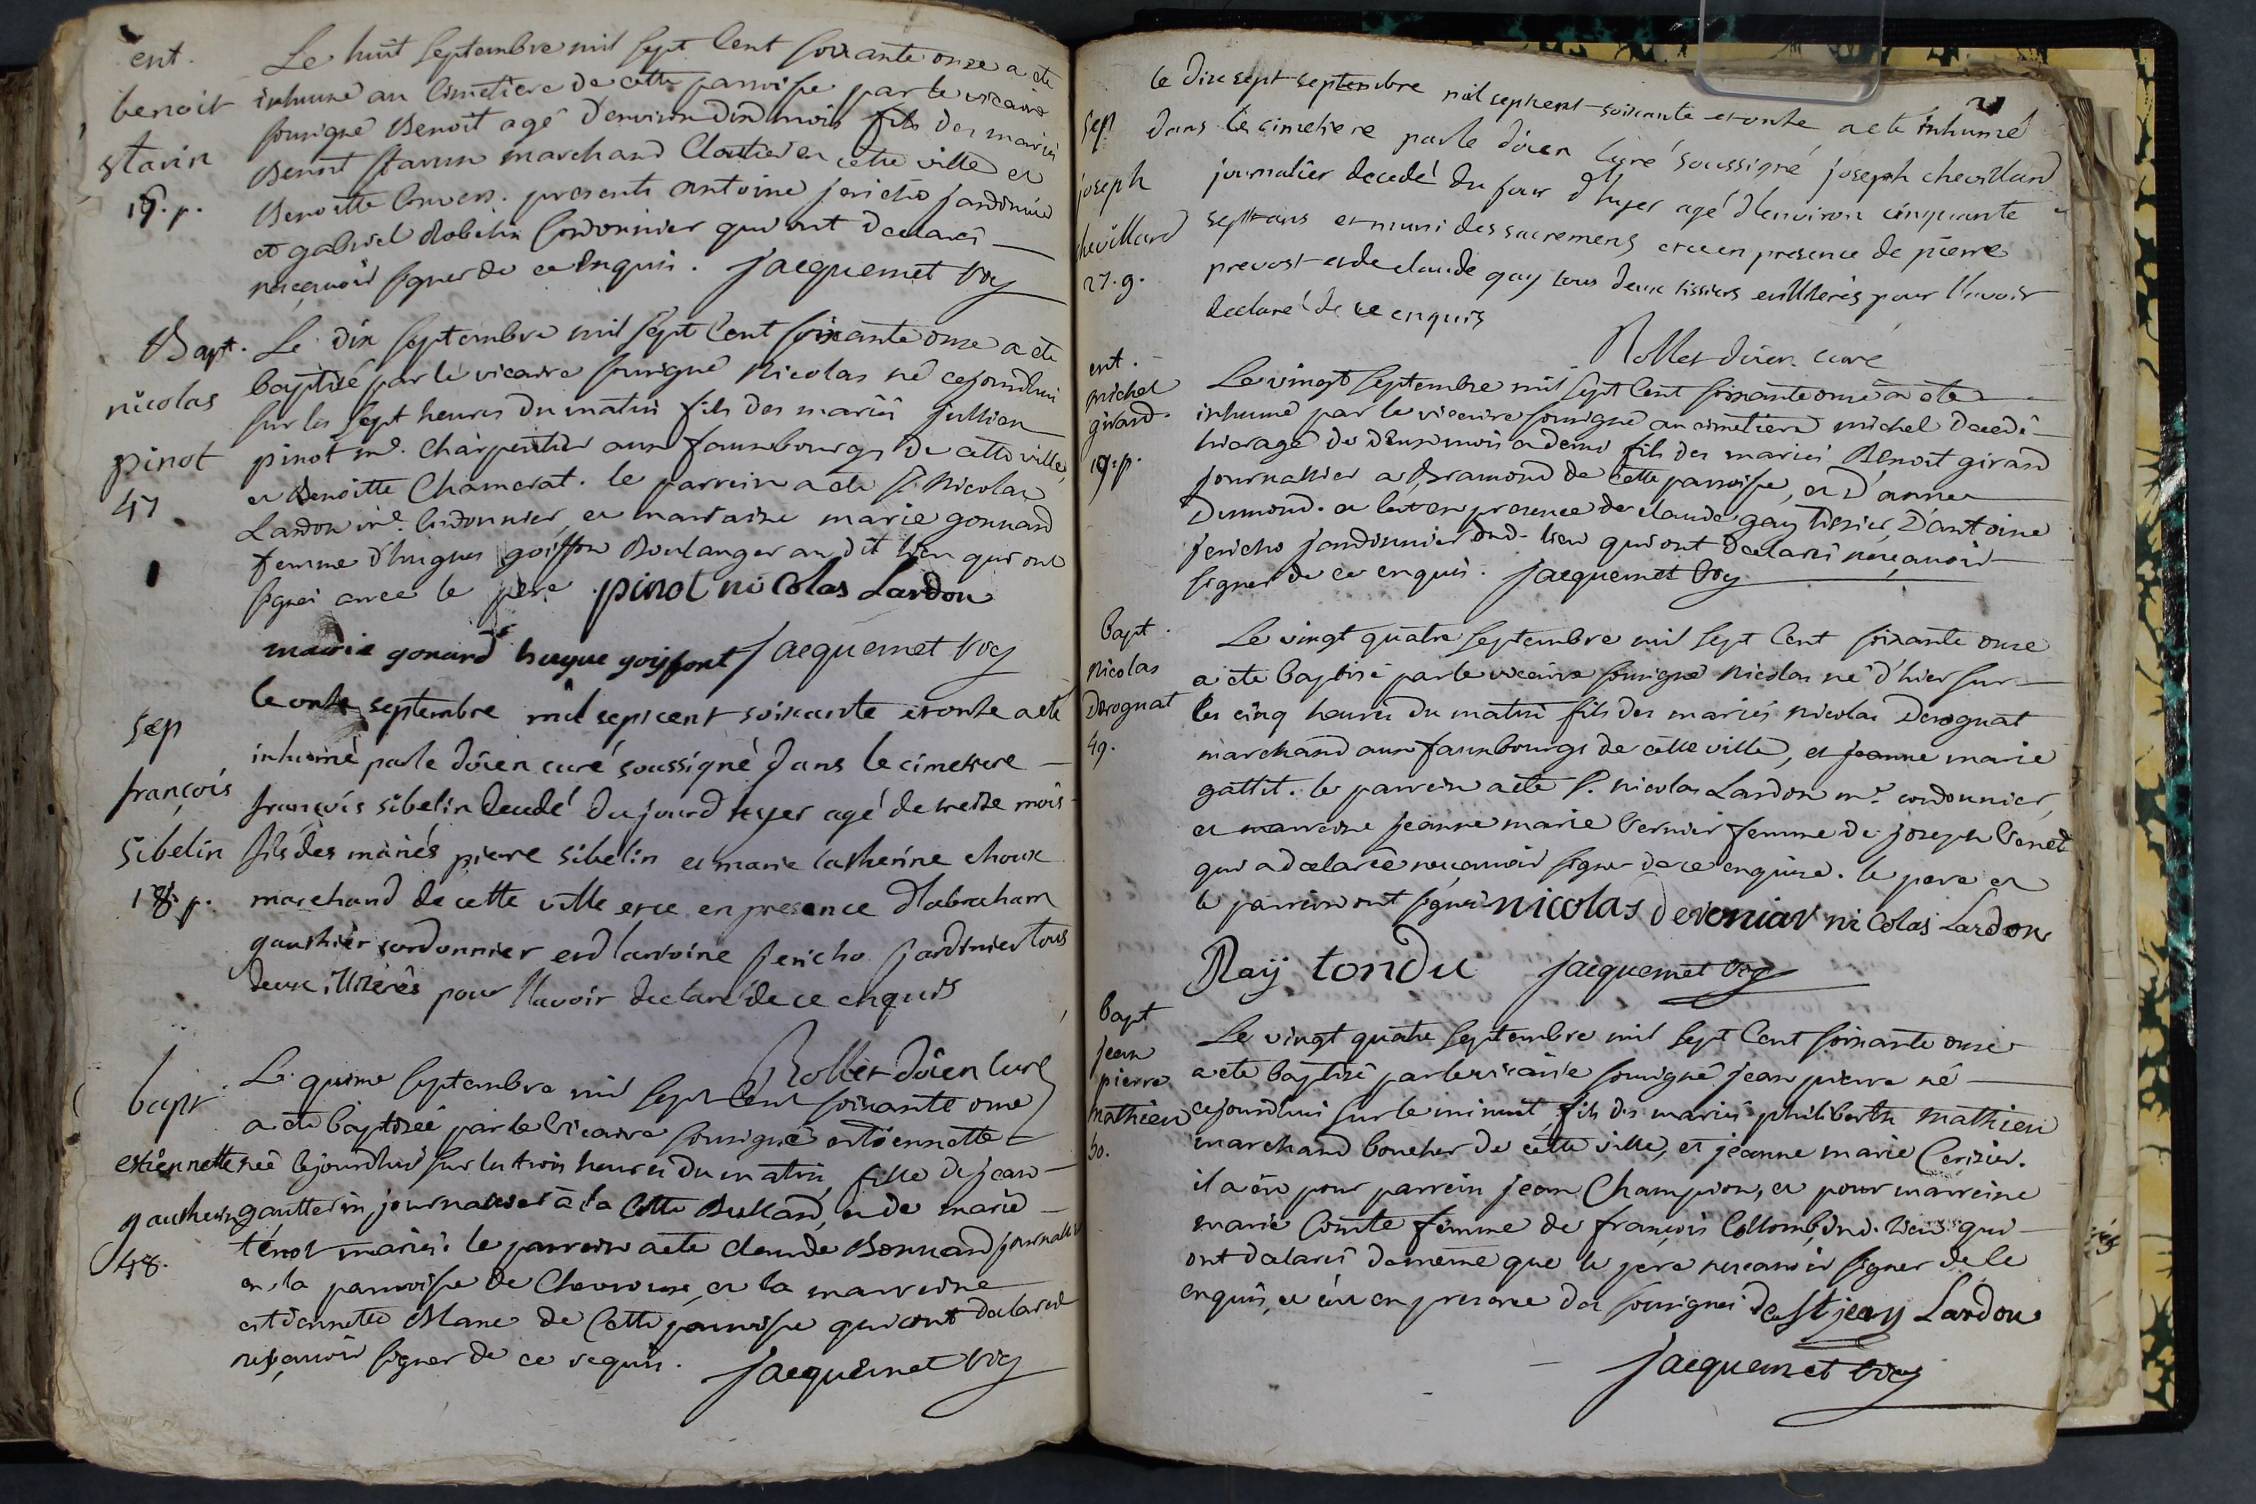 ent.
benoit
stavin
19. p.
Le huit septembre mil sept Cent soixante onze a ete
inhumé au Cimetiere de cette parroisse par le vicaire
sousigné Benoit agé d'environ dix mois fils des mariés
Benoit stavin marchand Cloutier en cette ville et
Benoitte Convers. presents antoine jericho jardinier
et gabriel Robelin Cordonnier qui ont declarés
ne sçavoir signer de ce enquis. jacquemet vic
Bapt.
nicolas
pinot
47
Le dix septembre mil sept Cent soixante onze a ete
baptisé par le vicaire sousigné Nicolas né cejourdhui
sur les sept heures du matin fils des mariés jullien
pinot md. Charpentier aux fauxbourgs de cette ville,
et Benoitte Chamerat. le parrein a ete S. Nicolas
Lardon md. Cordonnier, et marraine marie gonnard
femme d'hugues goiffon Boulanger audit lieu qui ont
signés avec le père pinot nicolas Lardon
marie gonard hugue goiffont jacquemet vic
sep
françois
sibelin
18. p.
le onze septembre mil septcent soixante et onze a eté
inhumé par le doïen curé soussigné dans le cimetiere
françois sibelin decedé du jourd hyer agé de treize mois
fils des mariés pierre sibelin et marie catherine choux
marchand de cette ville et ce en presence d'abraham
gauthier cordonnier et d'antoine jericho jardinier tous
deux illiterés pour l'avoir declaré de ce enquis
Rollet doïen curé
bapt
estiennette
gautherin
48.
Le quinze septembre mil sept Cent soixante onze
a ete baptisée par le vicaire sousigné estiennette
née cejourdhui sur les trois heures du matin, fille de jean
gautterin, journalier à la Cotte Bullard, et de marie
ténot mariés. le parrein a ete claude Bonnard journallier
en la parroisse de Chevroux, et la marreine
estiennette Mane de Cette parroisse qui ont declarés
ne sçavoir signer de ce requis. jacquemet vic
sep
joseph
chevillard
27. g.
le dix sept septembre mil septcent soixante et onze a eté inhumé
dans le cimetiere par le doïen curé soussigné joseph chevillard
journalier decedé du jour d'hyer agé d'environ cinquante
sept ans et muni des sacremens, et ce en presence de pierre
prevost et de claude gay tous deux tissiers enillitérés pour l'avoir
declaré de ce enquis
Rollet doïen curé
ent.
michel
girard.
19. p.
Le vingt septembre mil sept Cent soixante onze a ete
inhumé par le vicaire sousigné au cimetiere michel decedé
hier agé de deux mois et demi fils des mariés Benoit girard
journallier a Bramond de Cette parroisse, et d'anne
Dumond. et ce en presence de claude gay tissier, d'antoine
jericho jardinnier dud. lieu qui ont declarés ne sçavoir
signer de ce enquis. jacquemet vic
bapt.
Nicolas
Derognat
49.
Le vingt quatre septembre mil sept Cent soixante onze
a ete baptisé par le vicaire sousigné Nicolas né d'hier sur
les cinq heures du matin fils des mariés Nicolas Derognat
marchand aux fauxbourgs de cette ville, et jeanne marie
gattit. le parrein a ete S. Nicolas Lardon md. cordonnier,
et marreine jeanne marie Vernier femme de joseph Venet
qui a declarée ne sçavoir signer de ce enquise. le pere et
le parrein ont signés nicolas deroniat nicolas Lardon
Raij tondu jacquemet vic
bapt
jean
pierre
mathieu
50.
Le vingt quatre septembre mil sept Cent soixante onze
a ete baptisé par le vicaire sousigné jean pierre né
cejourdhui sur le minuit, fils des mariés philiberth mathieu
marchand boucher de cette ville, et jeanne marie Cerisier.
il a eu pour parrein jean Champion, et pour marreine
marie Comte femme de françois Collomb, dud. lieu qui
ont declarés de même que le pere ne sçavoir signer de ce
enquis, et ce en presence des sousignés De St jean Lardon
jacquemet vic